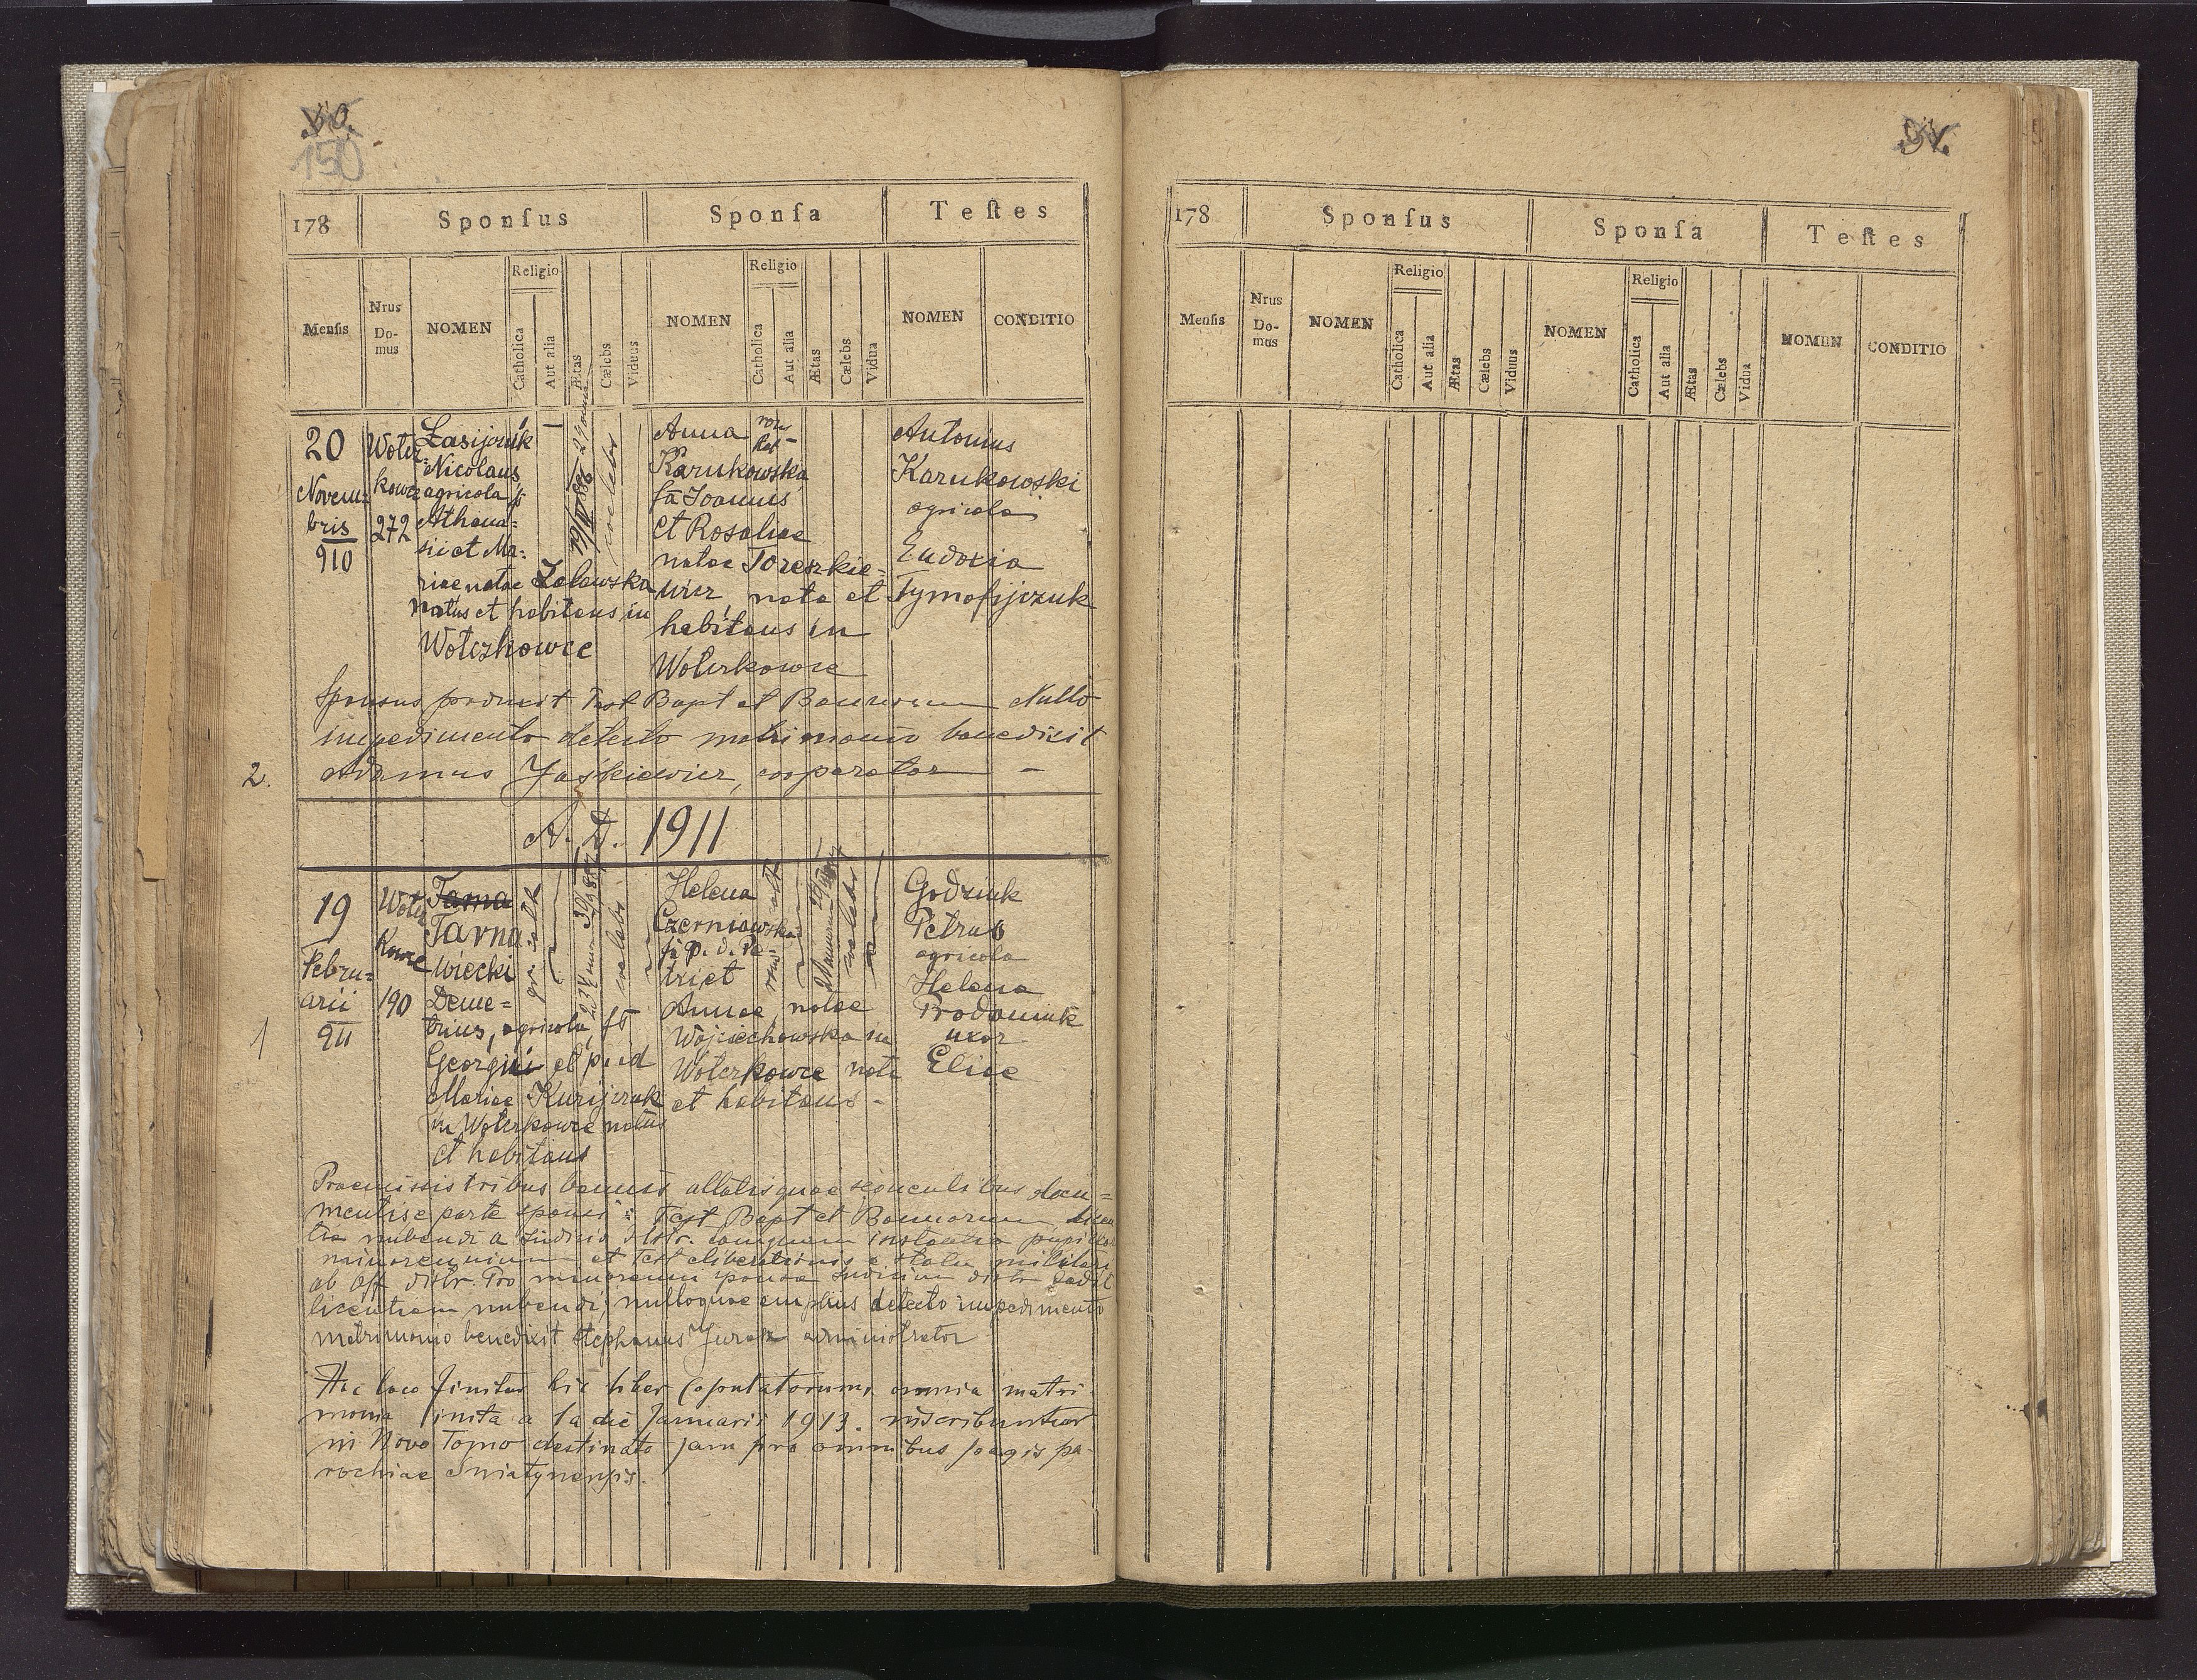 50.
150
178 Sponſus Sponſa Teſtes
Menſis Nrus Do-mus NOMEN Religio Catholica Aut alia Ætas Cælebs Viduus NOMEN Religio Catholica Aut alia Ætas Cælebs Vidua NOMEN CONDITIO
20
Novem-
bris
910
Wołcz
kowce
272
Łasijczuk
Nicolaus
agricola f
Athana=
sii et Ma=
riae natae Zalewska
natus et habitans in
Wołczkowce
coelebs
Anna rom
Kat
Karukowska
fa Joannis
et Rosaliae
natae Toreszkie=
wicz, nata et
habitans in
Wołczkowce
Antonius
Karukowski
agricola
Eudoxia
Tymofijczuk
Sponsus produxit Test Bapt et Bannorum Nullo
impedimento detecto matrimonio benedixit
2.
Adamus Jaśkiewicz, cooperator —
A. D. 1911
19
Febru=
arii
911
1
Wołcz
kowce
190
Tarna
Tarna
wiecki
Deme=
trius, agricola, f
Georgii et p. id
Mariae Kurijczuk
in Wołczkowce natus
et habitans
coelebs
Helena
Czerniawska
fa p. d. Pe-
tri et
Annae, natae
Wojciechowska in
Wołczkowce nata
et habitans -
coelebs
Godziuk
Petrus
agricola
Helena
Prodaniuk
uxor
Eliae
Praemissis tribus bannis allatisque sequentibus docu=
mentis e parte sponsi: Test Bapt et Bannorum, licen
tia nubendi a Judicio distr. tamquam instantia
minorennium et Test liberationis e statu militari
ab Off distr. Pro minorenni sponsa Judicium distr dedit
licentiam nubendi, nulloque amplius detecto impedimento
matrimonio benedixit Stephanus Jurasz administrator
Hoc loco finitur hic liber Copulatorum, omnia matri-
monia inita a 1a die Januarii 1913. inscribuntur
in Novo Tomo destinato jam pro omnibus pagis pa-
rochiae Sniatynensis.
91.
178 Sponſus Sponſa Teſtes
Menſis Nrus Do-mus NOMEN Religio Catholica Aut alia Ætas Cælebs Viduus NOMEN Religio Catholica Aut alia Ætas Cælebs Vidua NOMEN CONDITIO